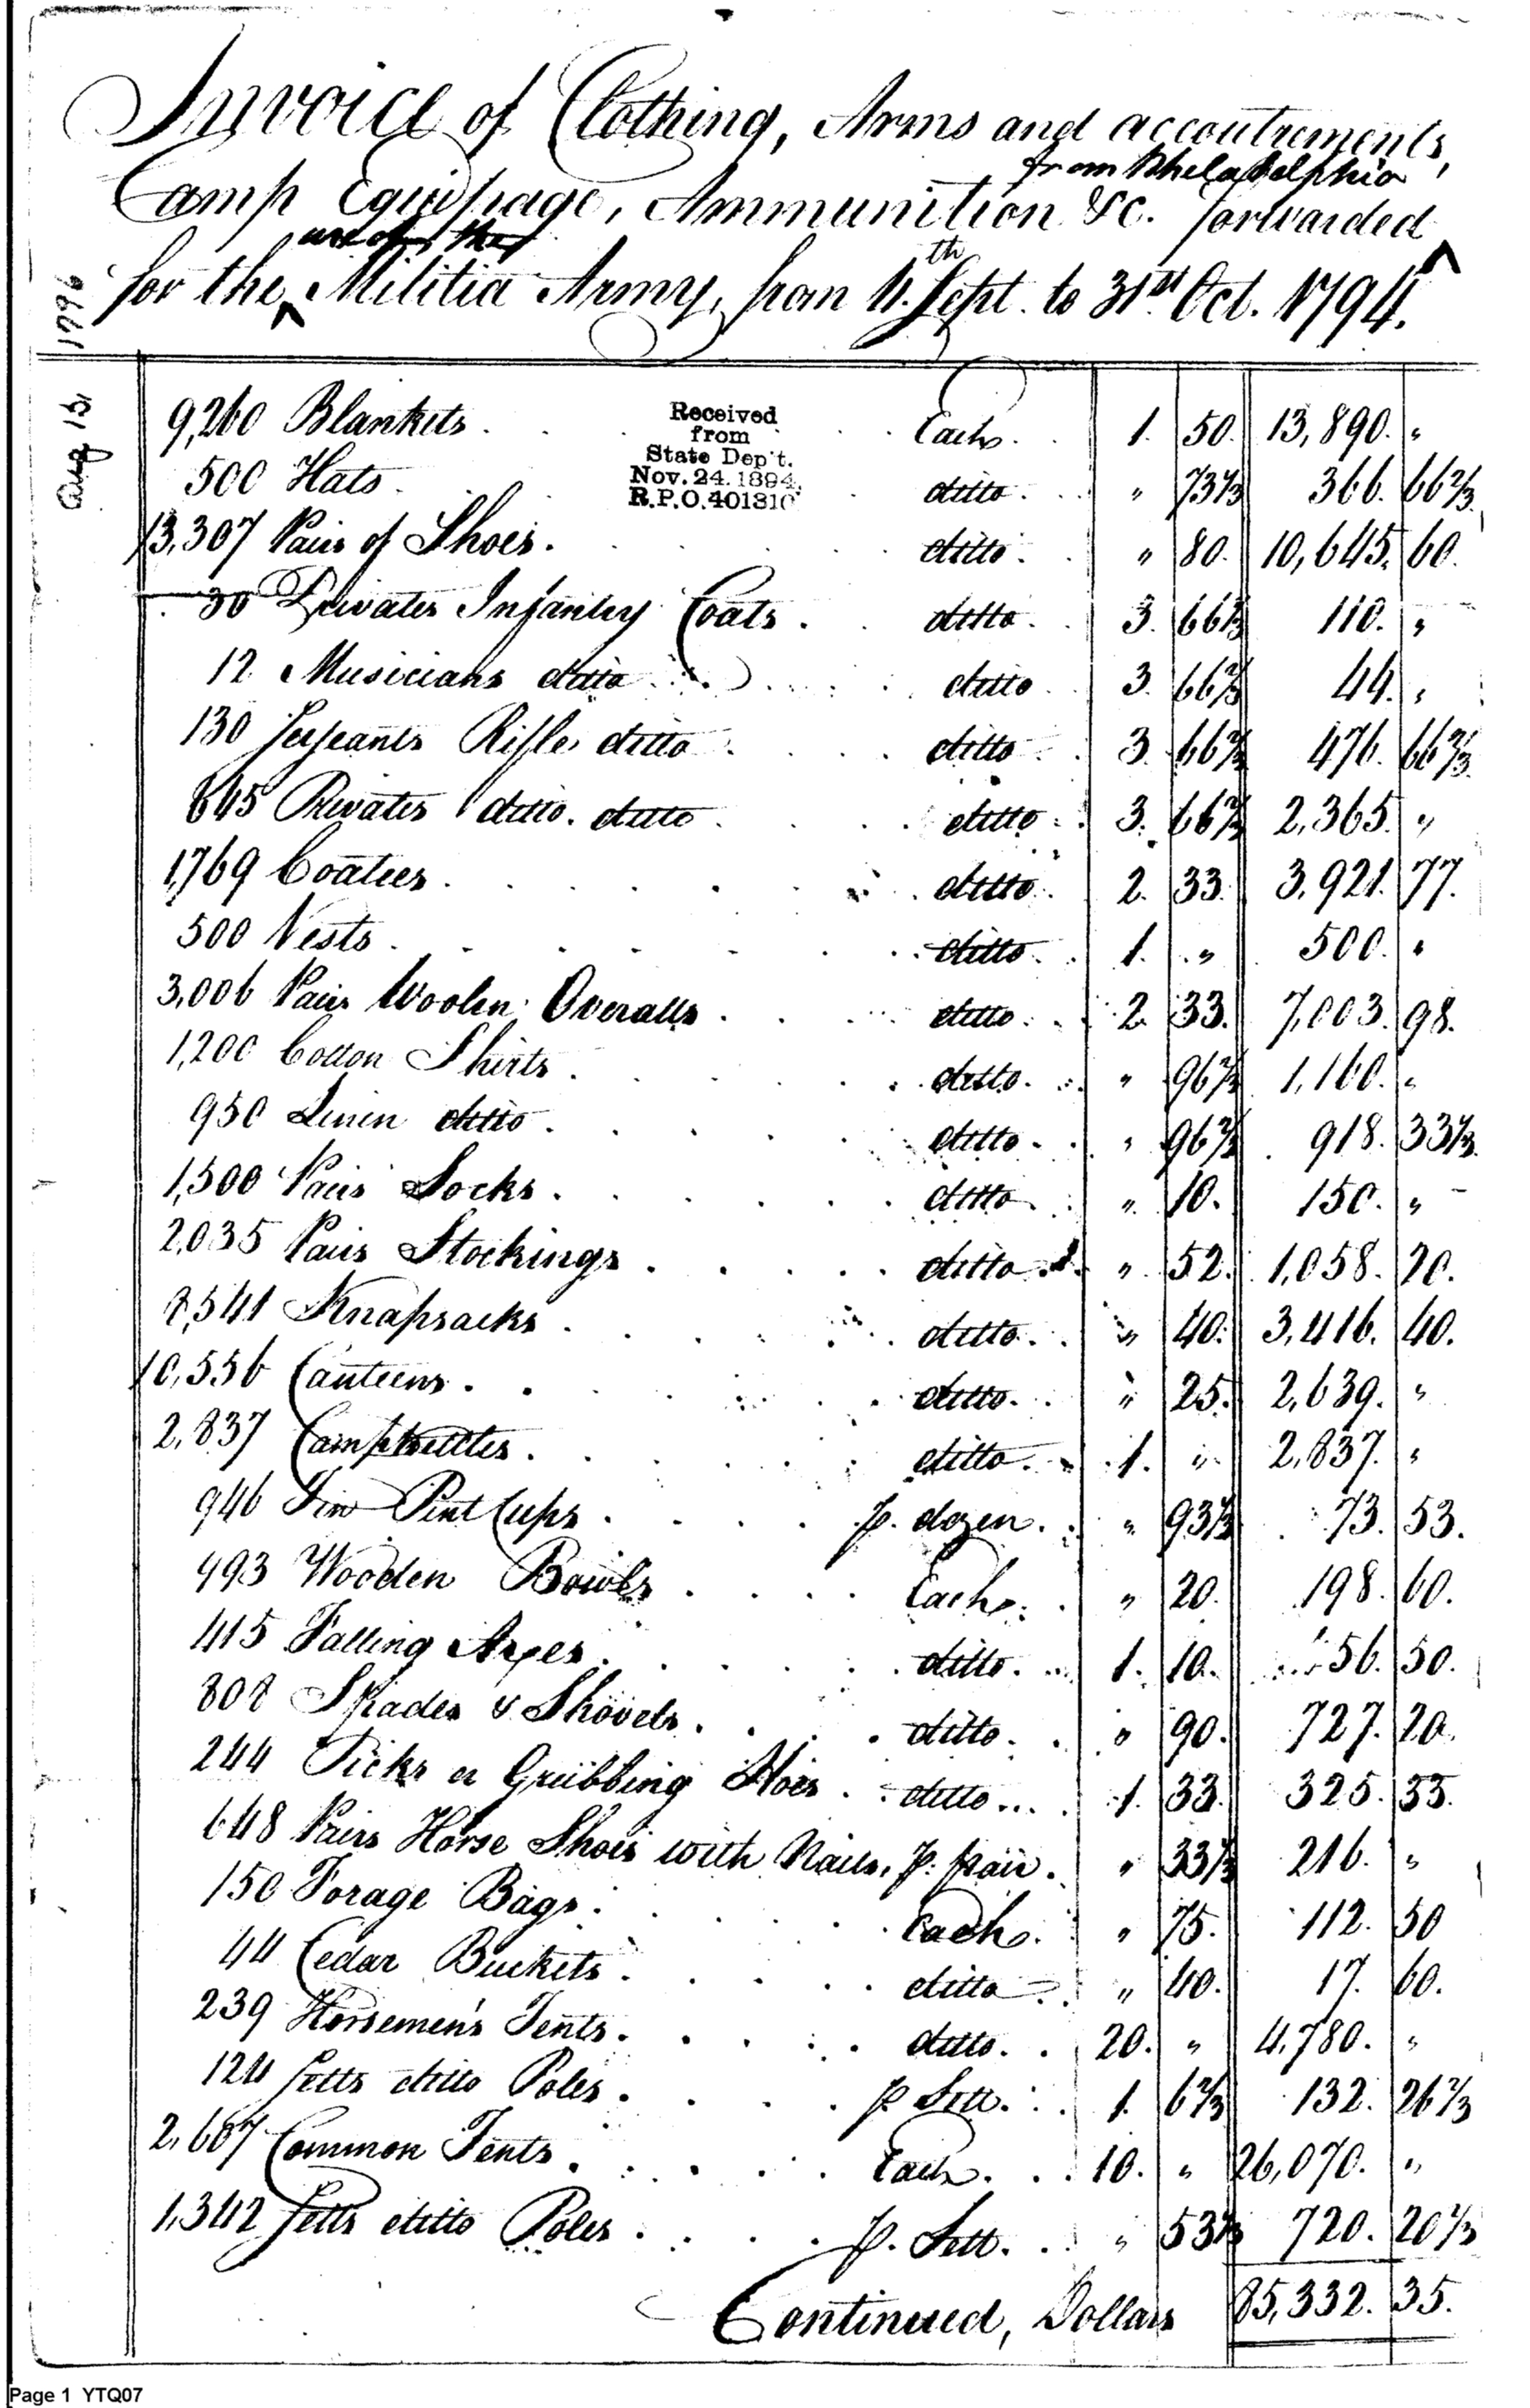 Invoice of Clothing, Arms and accoutrements,
from Philadelphia
Camp Equipage, Ammunition &c. forwarded
use of the
for the Militia Army, from 11th Sept. to 31st Oct. 1794.
Aug 15 1796
Received
from
State Dep't.
Nov. 24. 1894.
R.P.O. 401310
9,260 Blankets . Each . 1. 50. 13,890. "
500 Hats . ditto . " 73 1/3 366. 66 2/3
13,307 Pairs of Shoes . ditto . " 80. 10,645. 60.
30 Privates Infantry Coats . ditto . 3. 66 2/3 110. "
12 Musicians ditto . ditto . 3. 66 2/3 44. "
130 Serjeants Rifle ditto . ditto . 3. 66 2/3 476. 66 2/3
645 Privates ditto. ditto . ditto . 3. 66 2/3 2,365. "
1,769 Coatees . ditto . 2. 33. 3,921. 77.
500 Vests . ditto . 1. " 500. "
3,006 Pairs Woolen Overalls . ditto . 2. 33. 7,003. 98.
1,200 Cotton Shirts . ditto . " 96 2/3 1,160. "
950 Linen ditto . ditto . " 96 2/3 918. 33 1/3
1,500 Pairs Socks . ditto . " 10. 150. "
2,035 Pairs Stockings . ditto . " 52. 1,058. 20.
8,541 Knapsacks . ditto . " 40. 3,416. 40.
10,556 Canteens . ditto . " 25. 2,639. "
2,837 Campkettles . ditto . 1. " 2,837. "
946 Tin Pint Cups . p. dozen . " 93 1/3 73. 53.
993 Wooden Bowls . Each . " 20. 198. 60.
415 Falling Axes . ditto . 1. 10. 456. 50.
808 Spades & Shovels . ditto . " 90. 727. 20.
244 Picks or Grubbing Hoes . ditto . 1. 33. 325. 33.
648 Pairs Horse Shoes with Nails, p. pair . " 33 1/3 216. "
150 Forage Bags . Each . " 75. 112. 50
44 Cedar Buckets . ditto . " 40. 17. 60.
239 Horsemen's Tents . ditto . 20. " 4,780. "
124 Setts ditto Poles . p Sett . 1. 6 2/3 132. 26 2/3
2,607 Common Tents . Each . 10. " 26,070. "
1,342 Setts ditto Poles . p. Sett . " 53 2/3 720. 20 2/3
Continued, Dollars 85,332. 35.
Page 1 YTQ07